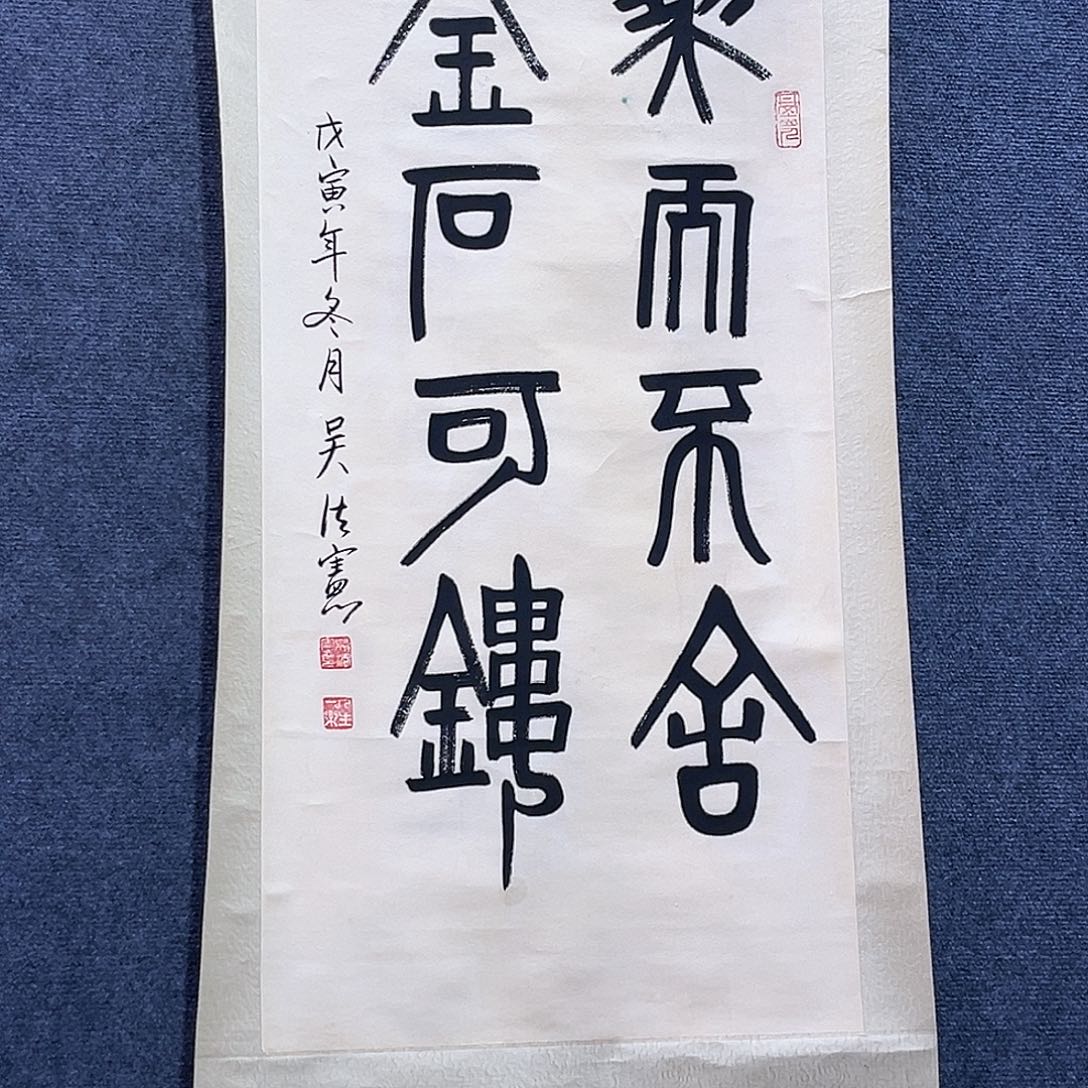 而不舍
金石可鏤
戊寅年冬月 吴法憲